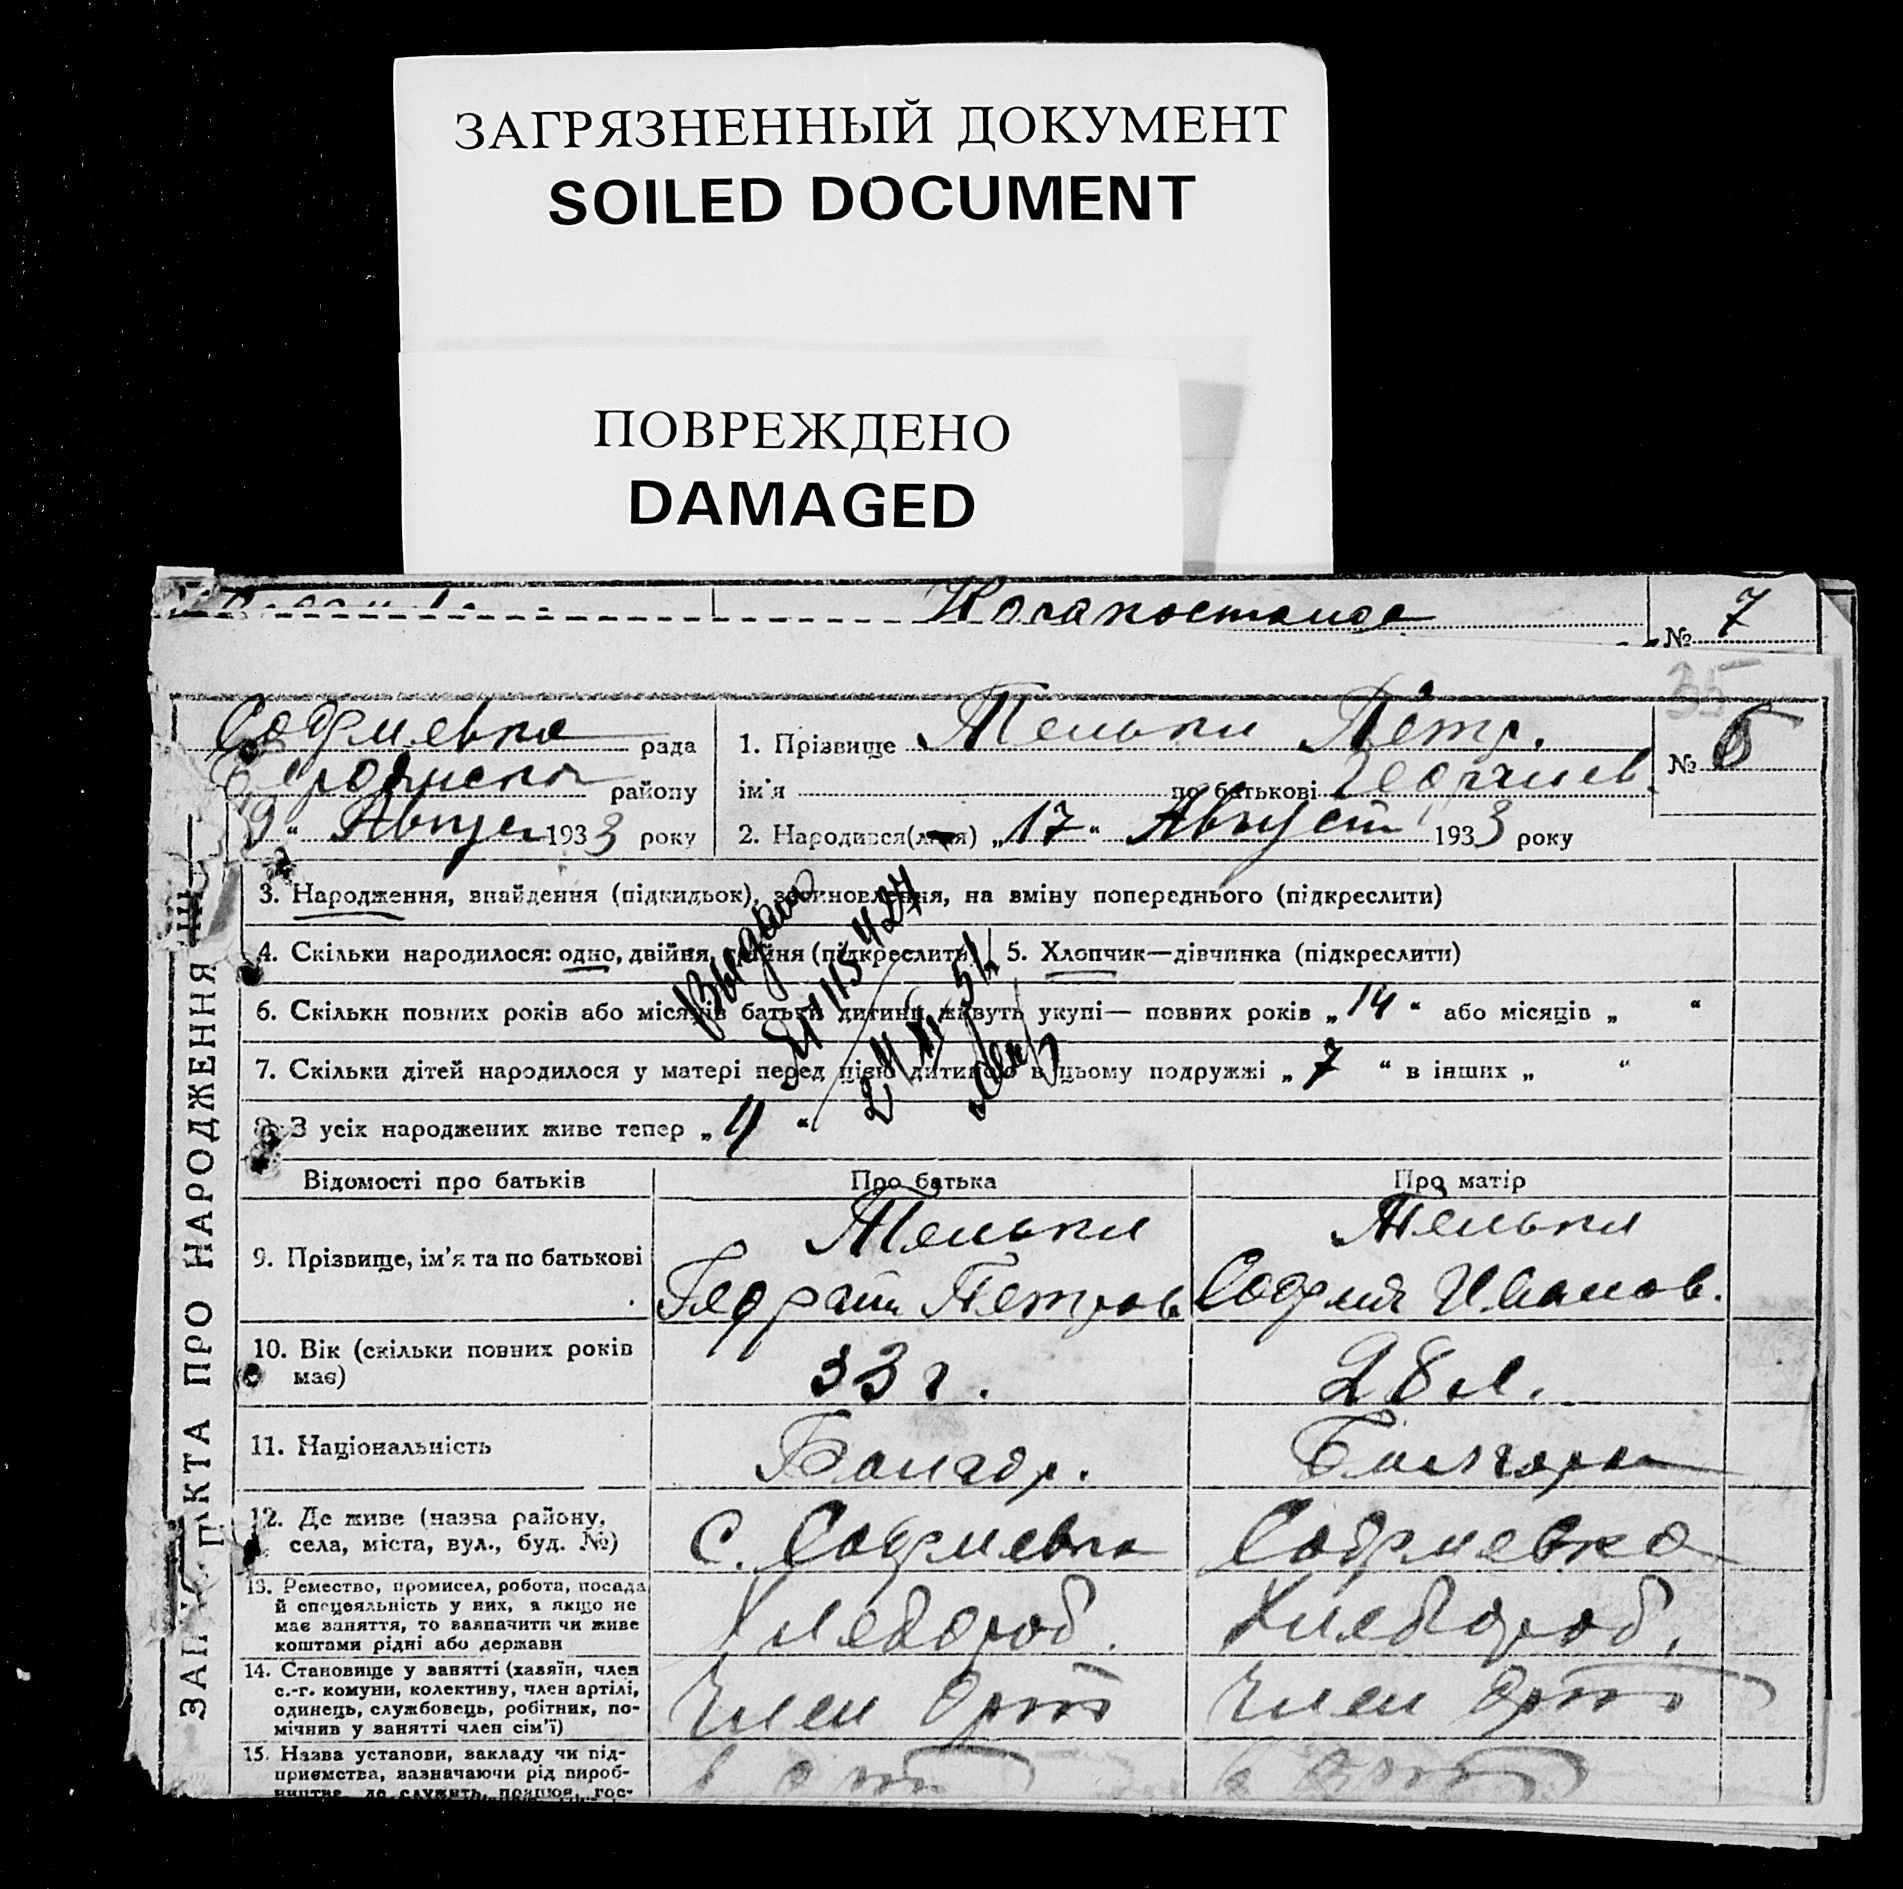 ЗАГРЯЗНЕННЫЙ ДОКУМЕНТ
SOILED DOCUMENT
ПОВРЕЖДЕНО
DAMAGED
№ 7
35
Софиевка рада
району
9 " Август 1933 року
1. Прізвище Тельпи Пётр.
ім'я по батькові Георгиев.
2. Народився(лася) „17" Август 1933 року
№ 6
ЗАПИС АКТА ПРО НАРОДЖЕННЯ
3. Народження, знайдення (підкидьок), усиновлення, на зміну попереднього (підкреслити)
4. Скільки народилося: одно, двійня, трійня (підкреслити)
5. Хлопчик—дівчинка (підкреслити)
6. Скільки повних років або місяців батьки дитини живуть укупі— повних років „14" або місяців „ "
7. Скільки дітей народилося у матері перед цією дитиною в цьому подружжі „7 " в інших „ "
8. З усіх народжених живе тепер „4 "
Відомості про батьків
Про батька
Про матір
9. Прізвище, ім'я та по батькові
Тельпи
Георгий Петров
Тельпи
София Иванов.
10. Вік (скільки повних років має)
33 г.
28 л.
11. Національність
Болгар.
Болгарка
12. Де живе (назва району,
села, міста, вул., буд. №)
с. Софиевка
Софиевка
13. Ремество, промисел, робота, посада
й спеціяльність у них, а якщо не
має заняття, то зазначити чи живе
коштами рідні або держави
Хлебороб.
Хлебороб.
14. Становище у занятті (хазяїн, член
с.-г. комуни, колективу, член артілі,
одинець, службовець, робітник, по-
мічник у занятті член сім'ї)
Член Арт
Член Арт
15. Назва установи, закладу чи під-
приємства, зазначаючи рід вироб-
ництва, де служить, працює, гос-